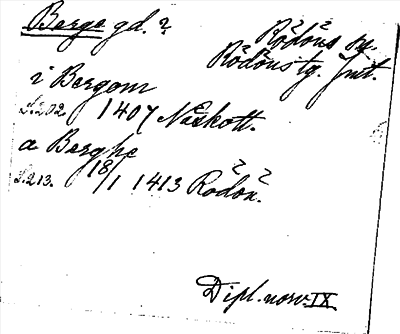 Berge gd. 2
Rödöns sn.
Rödöns tg. Jmt.
i Bergom
S. 202. 1407 Næskott.
a Berghe
S. 213. 18/1 1413 Rödön.
Dipl. norv. IX.